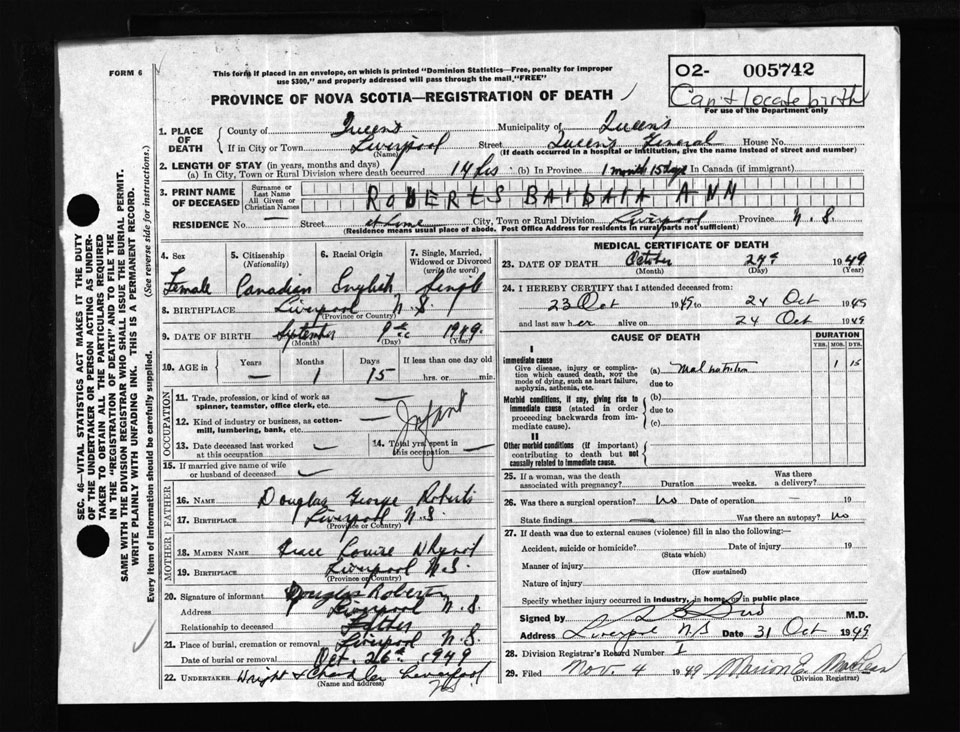 FORM 6
This form if placed in an envelope, on which is printed "Dominion Statistics—Free, penalty for improper
use $300," and properly addressed will pass through the mail, "FREE"
PROVINCE OF NOVA SCOTIA—REGISTRATION OF DEATH
02- 005742
Can't locate birth
For use of the Department only
SEC. 46—VITAL STATISTICS ACT MAKES IT THE DUTY
OF THE UNDERTAKER OR PERSON ACTING AS UNDER-
TAKER TO OBTAIN ALL THE PARTICULARS REQUIRED
IN THE "REGISTRATION OF DEATH" AND TO FILE THE
SAME WITH THE DIVISION REGISTRAR WHO SHALL ISSUE THE BURIAL PERMIT.
WRITE PLAINLY WITH UNFADING INK. THIS IS A PERMANENT RECORD.
Every item of information should be carefully supplied. (See reverse side for instructions.)
1. PLACE OF DEATH
County of Queens Municipality of Queens
If in City or Town Liverpool Street Queens General House No.
(Name) (If death occurred in a hospital or institution, give the name instead of street and number)
2. LENGTH OF STAY (in years, months and days)
(a) In City, Town or Rural Division where death occurred 14 hrs (b) In Province 1 month 15 days In Canada (if immigrant)
3. PRINT NAME OF DECEASED
Surname or Last Name
All Given or Christian Names
ROBERTS BARBARA ANN
RESIDENCE No. — Street at Lime City, Town or Rural Division Liverpool Province N.S.
(Residence means usual place of abode. Post Office Address for rural parts not sufficient)
4. Sex 5. Citizenship (Nationality) 6. Racial Origin 7. Single, Married, Widowed or Divorced (write the word)
Female Canadian English Single
8. BIRTHPLACE Liverpool N.S.
(Province or Country)
9. DATE OF BIRTH September 9th 1949
(Month) (Day) (Year)
10. AGE in Years Months Days If less than one day old
— 1 15 hrs. or min.
OCCUPATION
11. Trade, profession, or kind of work as
spinner, teamster, office clerk, etc. —
12. Kind of industry or business, as cotton-
mill, lumbering, bank, etc. —
Infant
13. Date deceased last worked at this occupation —
14. Total yrs. spent in this occupation —
15. If married give name of wife or husband of deceased —
FATHER
16. NAME Douglas George Roberts
17. BIRTHPLACE Liverpool N.S.
(Province or Country)
MOTHER
18. MAIDEN NAME Grace Louise Whynot
19. BIRTHPLACE Liverpool N.S.
(Province or Country)
20. Signature of informant Douglas Roberts
Address Liverpool N.S.
Relationship to deceased Father
21. Place of burial, cremation or removal Liverpool N.S.
Date of burial or removal Oct. 26th 1949
22. UNDERTAKER Wright & Chandler Liverpool
NS
(Name and address)
MEDICAL CERTIFICATE OF DEATH
23. DATE OF DEATH October 24th 1949
(Month) (Day) (Year)
24. I HEREBY CERTIFY that I attended deceased from:
23 Oct 1949 to 24 Oct 1949
and last saw her alive on 24 Oct 1949
CAUSE OF DEATH
DURATION
YRS. MOS. DYS.
I
Immediate cause
Give disease, injury or complication which caused death, NOT the mode of dying, such as heart failure, asphyxia, asthenia, etc.
(a) Malnutrition 1 15
due to
Morbid conditions, if any, giving rise to immediate cause (stated in order proceeding backwards from immediate cause).
(b)
due to
(c)
II
Other morbid conditions (if important) contributing to death but not causally related to immediate cause.
25. If a woman, was the death associated with pregnancy? Duration weeks. Was there a delivery?
26. Was there a surgical operation? no Date of operation — 19
State findings — Was there an autopsy? no
27. If death was due to external causes (violence) fill in also the following:—
Accident, suicide or homicide? Date of injury 19
(State which)
Manner of injury
(How sustained)
Nature of injury
Specify whether injury occurred in industry, in home, or in public place
Signed by M.D.
Address Liverpool NS Date 31 Oct 1949
28. Division Registrar's Record Number 1
29. Filed Nov. 4 1949 Marion E. MacLean
(Division Registrar)